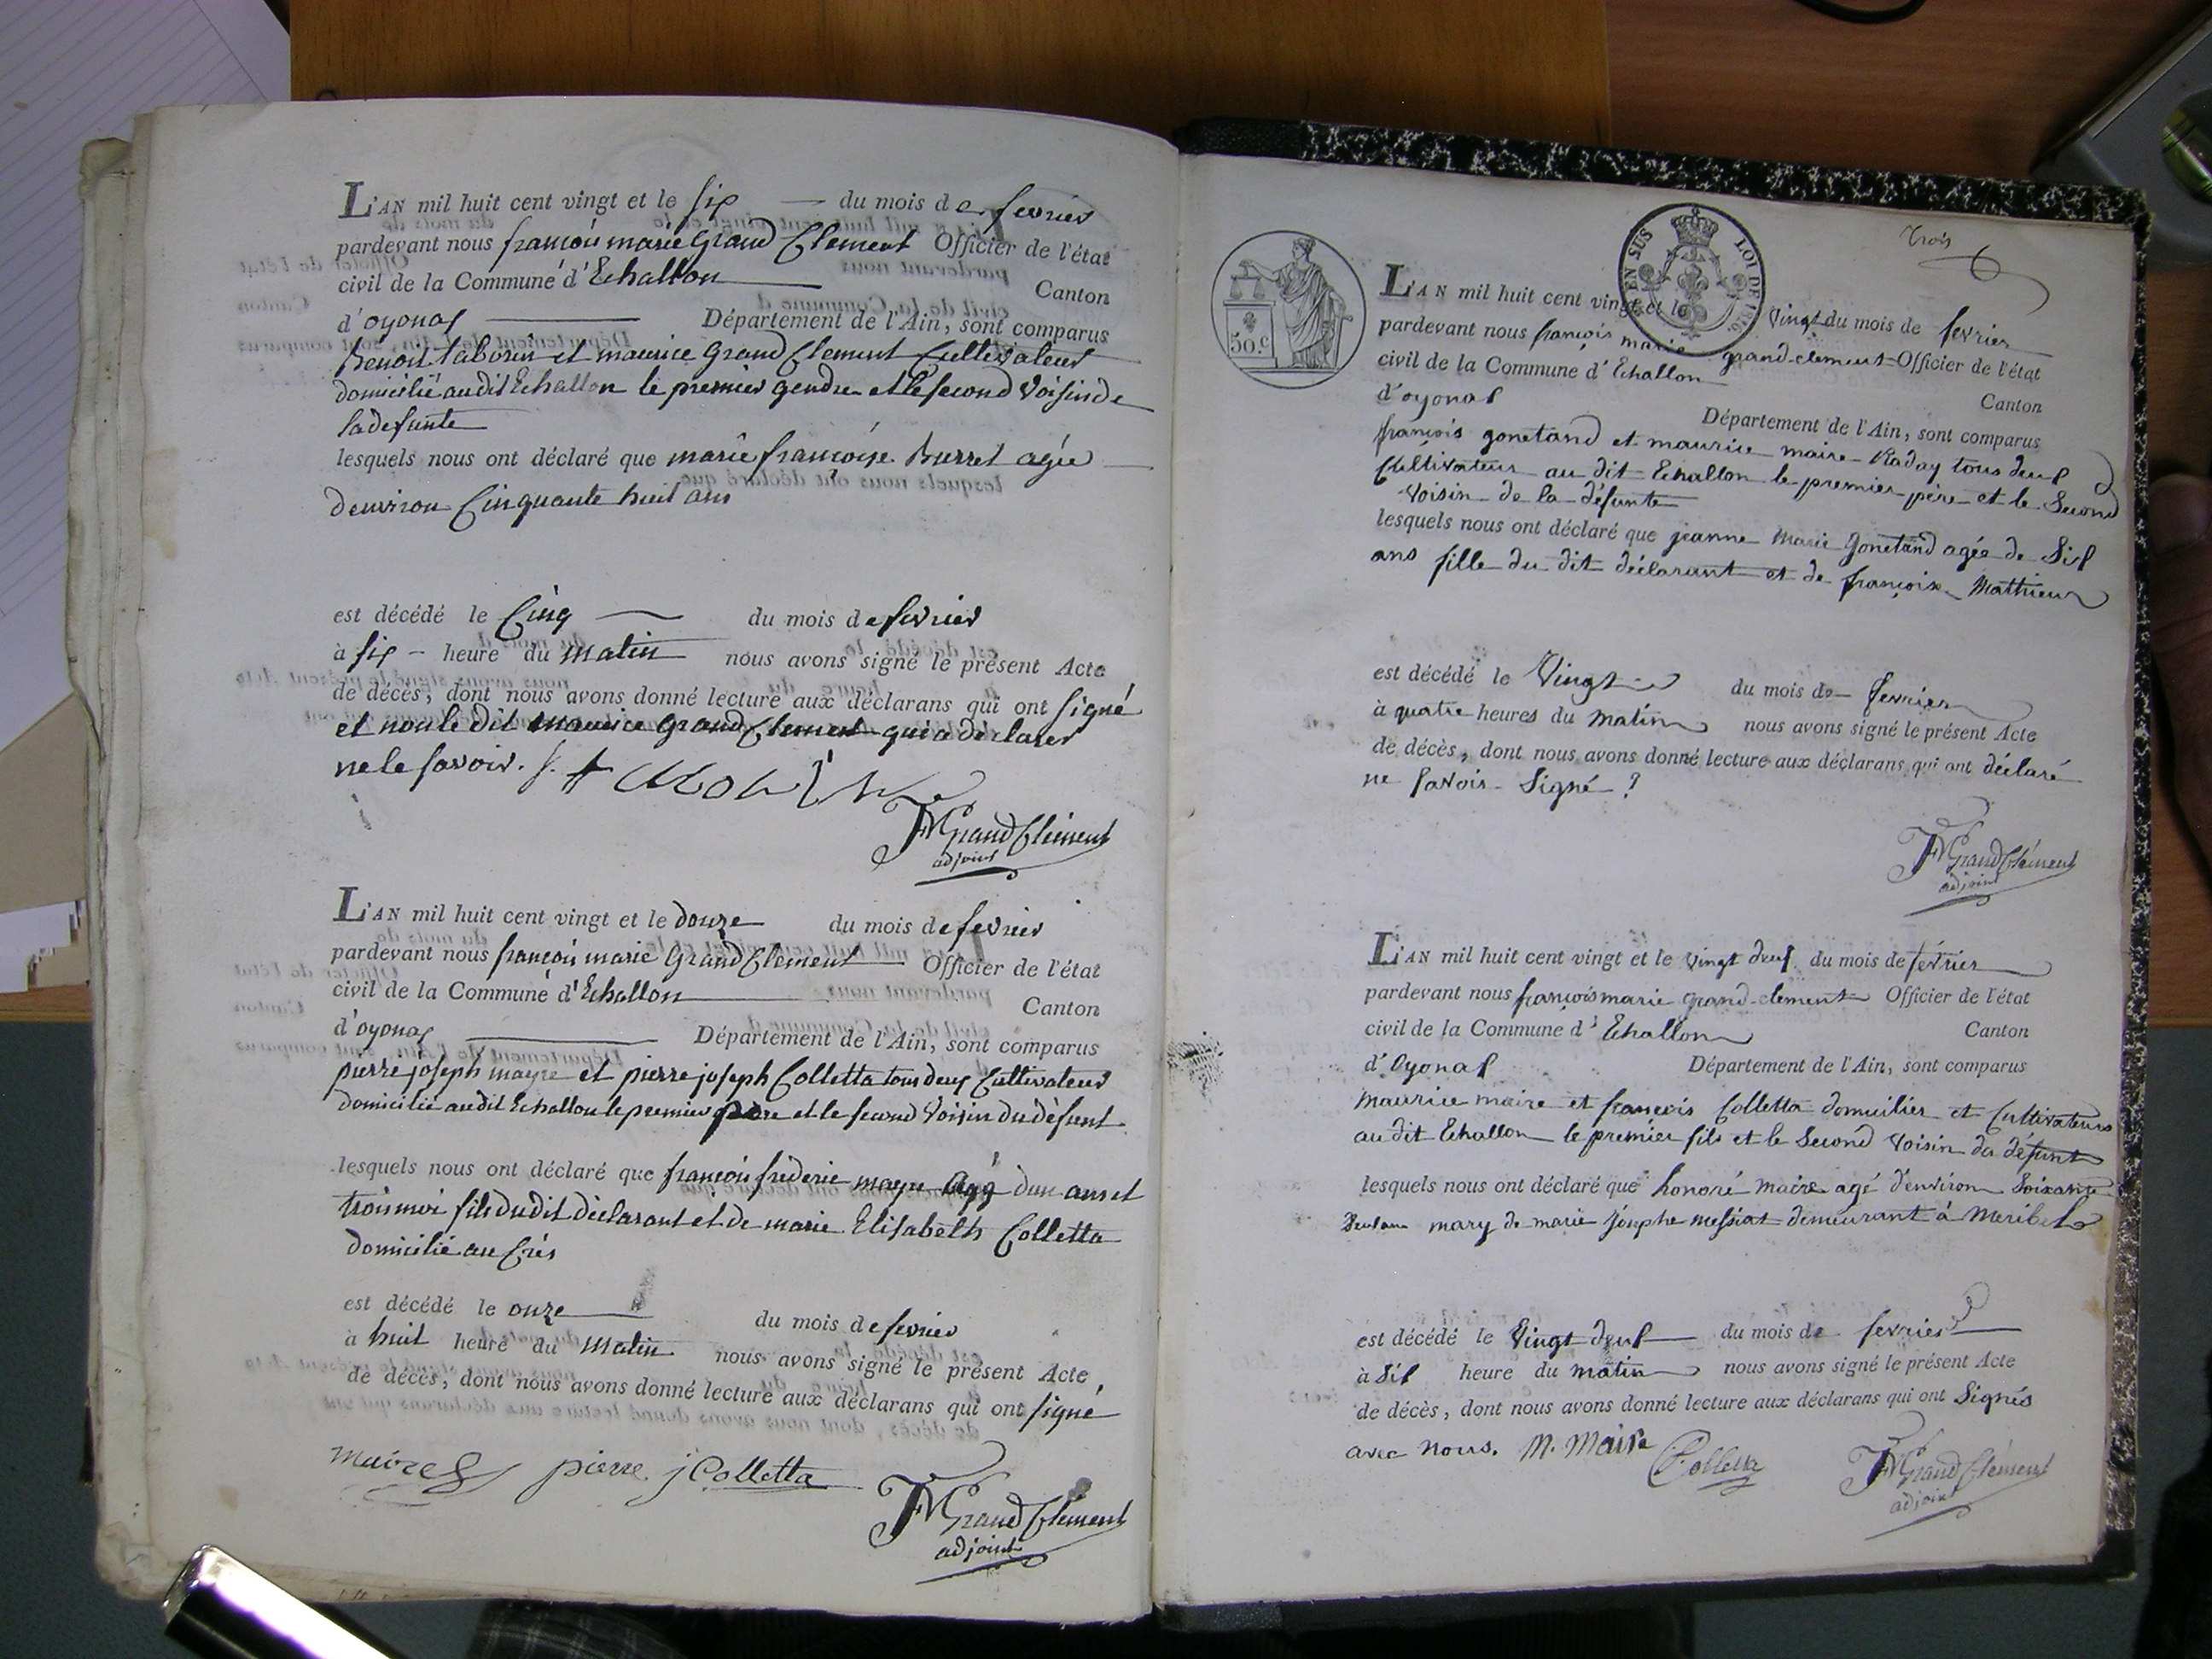 L'AN mil huit cent vingt et le six du mois de fevrier
pardevant nous françois marie Grand Clement Officier de l'état
civil de la Commune d'Echallon Canton
d'oyonax Département de l'Ain, sont comparus
Benoit taborin et maurice Grand Clement Cultivateur
domicilié audit Echallon le premier gendre et le second Voisin de
la defunte
lesquels nous ont déclaré que marie françoise Burret agée
denviron Cinquante huit ans
est décédé le Cinq du mois de fevrier
à six heure du Matin nous avons signé le présent Acte
de décès, dont nous avons donné lecture aux déclarans qui ont signé
et non le dit maurice Grand Clement qui a declarer
ne le savoir.
FMGrandClément
adjoint
L'AN mil huit cent vingt et le douze du mois de fevrier
pardevant nous françois marie Grand Clement Officier de l'état
civil de la Commune d'Echallon Canton
d'oyonax Département de l'Ain, sont comparus
pierre joseph mayre et pierre joseph Colletta tous deux Cultivateur
domicilié audit Echallon le premier père et le second Voisin du défunt
lesquels nous ont déclaré que françois fréderic mayre agé d'un ans et
trois moi fils du dit déclarant et de marie Elisabeth Colletta
domicilié au Crés
est décédé le onze du mois de fevrier
à huit heure du Matin nous avons signé le présent Acte
de décès, dont nous avons donné lecture aux déclarans qui ont signé
maire pierre j Colletta
FMGrandClément
adjoint
trois
EN SUS LOI DE 1816
50.c
L'AN mil huit cent vingt et le Vingt du mois de fevrier
pardevant nous françois marie grand-clement Officier de l'état
civil de la Commune d'Echallon Canton
d'oyonax Département de l'Ain, sont comparus
françois gonetand et maurice maire-Raday tous deux
Cultivateur au dit Echallon le premier père et le Second
Voisin de la défunte
lesquels nous ont déclaré que jeanne Marie Gonetand agée de Six
ans fille du dit déclarant et de françoise Mathieu
est décédé le Vingt du mois de fevrier
à quatre heures du Matin nous avons signé le présent Acte
de décès, dont nous avons donné lecture aux déclarans qui ont déclaré
ne savoir Signé
FMGrandClément
adjoint
L'AN mil huit cent vingt et le vingt deux du mois de février
pardevant nous françois marie grand-clement Officier de l'état
civil de la Commune d'Echallon Canton
d'Oyonax Département de l'Ain, sont comparus
Maurice maire et françois Colletta domicilier et Cultivateurs
au dit Echallon le premier fils et le Second Voisin du défunt
lesquels nous ont déclaré que honoré maire agé d'environ Soixante
mary de marie josephe messiat demeurant à Meribel
est décédé le Vingt deux du mois de fevrier
à six heure du matin nous avons signé le présent Acte
de décès, dont nous avons donné lecture aux déclarans qui ont Signés
avec nous. M. Maire Colletta FMGrandClément
adjoint